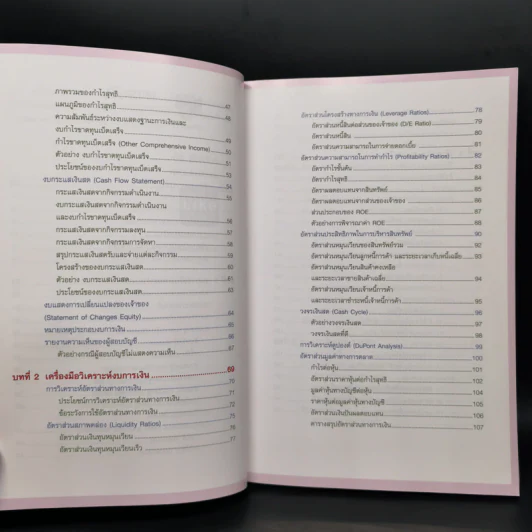 ภาพรวมของกำไรสุทธิ 47
แผนภูมิของกำไรสุทธิ
ความสัมพันธ์ระหว่างงบแสดงฐานะการเงินและ
งบกำไรขาดทุนเบ็ดเสร็จ
กำไรขาดทุนเบ็ดเสร็จ (Other Comprehensive Income)
ตัวอย่าง งบกำไรขาดทุนเบ็ดเสร็จ
ประโยชน์ของงบกำไรขาดทุนเบ็ดเสร็จ
งบกระแสเงินสด (Cash Flow Statement)
กระแสเงินสดจากกิจกรรมดำเนินงาน
งบกระแสเงินสดจากกิจกรรมดำเนินงาน
และงบกำไรขาดทุนเบ็ดเสร็จ
กระแสเงินสดจากกิจกรรมลงทุน
กระแสเงินสดจากกิจกรรมการจัดหา
สรุปกระแสเงินสดรับและจ่ายแต่ละกิจกรรม
โครงสร้างของงบกระแสเงินสด
ตัวอย่าง งบกระแสเงินสด
ประโยชน์ของงบกระแสเงินสด
งบแสดงการเปลี่ยนแปลงของเจ้าของ
(Statement of Changes Equity)
หมายเหตุประกอบงบการเงิน
รายงานความเห็นของผู้สอบบัญชี
ตัวอย่างกรณีผู้สอบบัญชีไม่แสดงความเห็น 67
บทที่ 2 เครื่องมือวิเคราะห์งบการเงิน 69
การวิเคราะห์อัตราส่วนทางการเงิน 70
ประโยชน์การวิเคราะห์อัตราส่วนทางการเงิน 71
ข้อระวังการใช้อัตราส่วนทางการเงิน 72
อัตราส่วนสภาพคล่อง (Liquidity Ratios) 75
อัตราส่วนเงินทุนหมุนเวียน 76
อัตราส่วนเงินทุนหมุนเวียนเร็ว 77
อัตราส่วนโครงสร้างทางการเงิน (Leverage Ratios) 78
อัตราส่วนหนี้สินต่อส่วนของเจ้าของ (D/E Ratio) 79
อัตราส่วนหนี้สิน 80
อัตราส่วนความสามารถในการจ่ายดอกเบี้ย 81
อัตราส่วนความสามารถในการทำกำไร (Profitability Ratios) 82
อัตรากำไรขั้นต้น 83
อัตรากำไรสุทธิ 84
อัตราผลตอบแทนจากสินทรัพย์ 85
อัตราผลตอบแทนจากส่วนของเจ้าของ 86
ส่วนประกอบของ ROE 87
ตัวอย่างการพิจารณาค่า ROE 88
อัตราส่วนประสิทธิภาพในการบริหารสินทรัพย์ 90
อัตราส่วนหมุนเวียนของสินทรัพย์รวม 92
อัตราส่วนหมุนเวียนลูกหนี้การค้า และระยะเวลาเก็บหนี้เฉลี่ย 93
อัตราส่วนหมุนเวียนสินค้าคงเหลือ
และระยะเวลาขายสินค้าเฉลี่ย 94
อัตราส่วนหมุนเวียนเจ้าหนี้การค้า
และระยะเวลาชำระหนี้เจ้าหนี้การค้า 95
วงจรเงินสด (Cash Cycle) 96
ตัวอย่างวงจรเงินสด 97
วงจรเงินสดที่ดี 98
การวิเคราะห์ดูปองท์ (DuPont Analysis) 99
อัตราส่วนมูลค่าทางการตลาด 100
กำไรต่อหุ้น 101
อัตราส่วนราคาหุ้นต่อกำไรสุทธิ 102
มูลค่าหุ้นทางบัญชีต่อหุ้น 104
ราคาหุ้นต่อมูลค่าหุ้นทางบัญชี 105
อัตราส่วนเงินปันผลตอบแทน 106
ตารางสรุปอัตราส่วนทางการเงิน 107